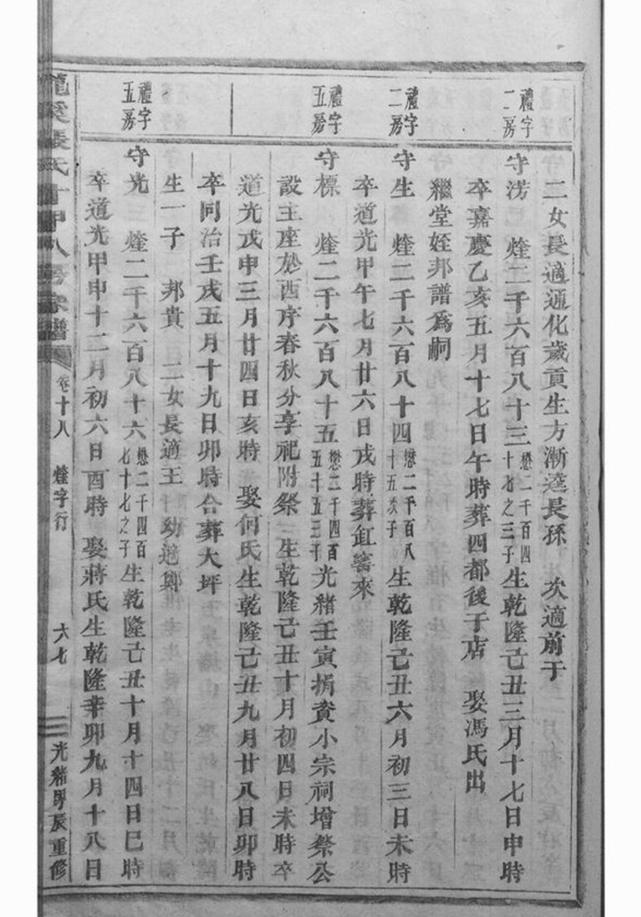 二女長適通化歲貢生方漸逵長孫 次適前于
禮字二房
守淓 燵二千六百八十三 懋二千百四十七之三子 生乾隆己丑三月十七日申時
卒嘉慶乙亥五月十七日午時葬四都後于店 娶馮氏出
繼堂姪邦譜爲嗣
禮字二房
守生 燵二千六百八十四 懋二千百八十五次子 生乾隆己丑六月初三日未時
卒道光甲午七月廿六日戌時葬缸窰來
禮字五房
守標 燵二千六百八十五 懋二千四百五十五三子 光緒壬寅捐資小宗祠增祭公
設主座於西序春秋分享祀附祭 生乾隆己丑十月初四日未時卒
道光戊申三月廿四日亥時 娶何氏生乾隆己丑九月廿八日卯時
卒同治壬戌五月十九日卯時合葬大坪
生一子 邦貴 二女長適王 幼適鄭
禮字五房
守光 燵二千六百八十六 懋二千四百七十七之子 生乾隆己丑十月十四日巳時
卒道光甲申十二月初六日酉時 娶蔣氏生乾隆辛卯九月十八日
龍溪張氏十甲八房宗譜 卷十八 燵字行 六七 光緒甲辰重修